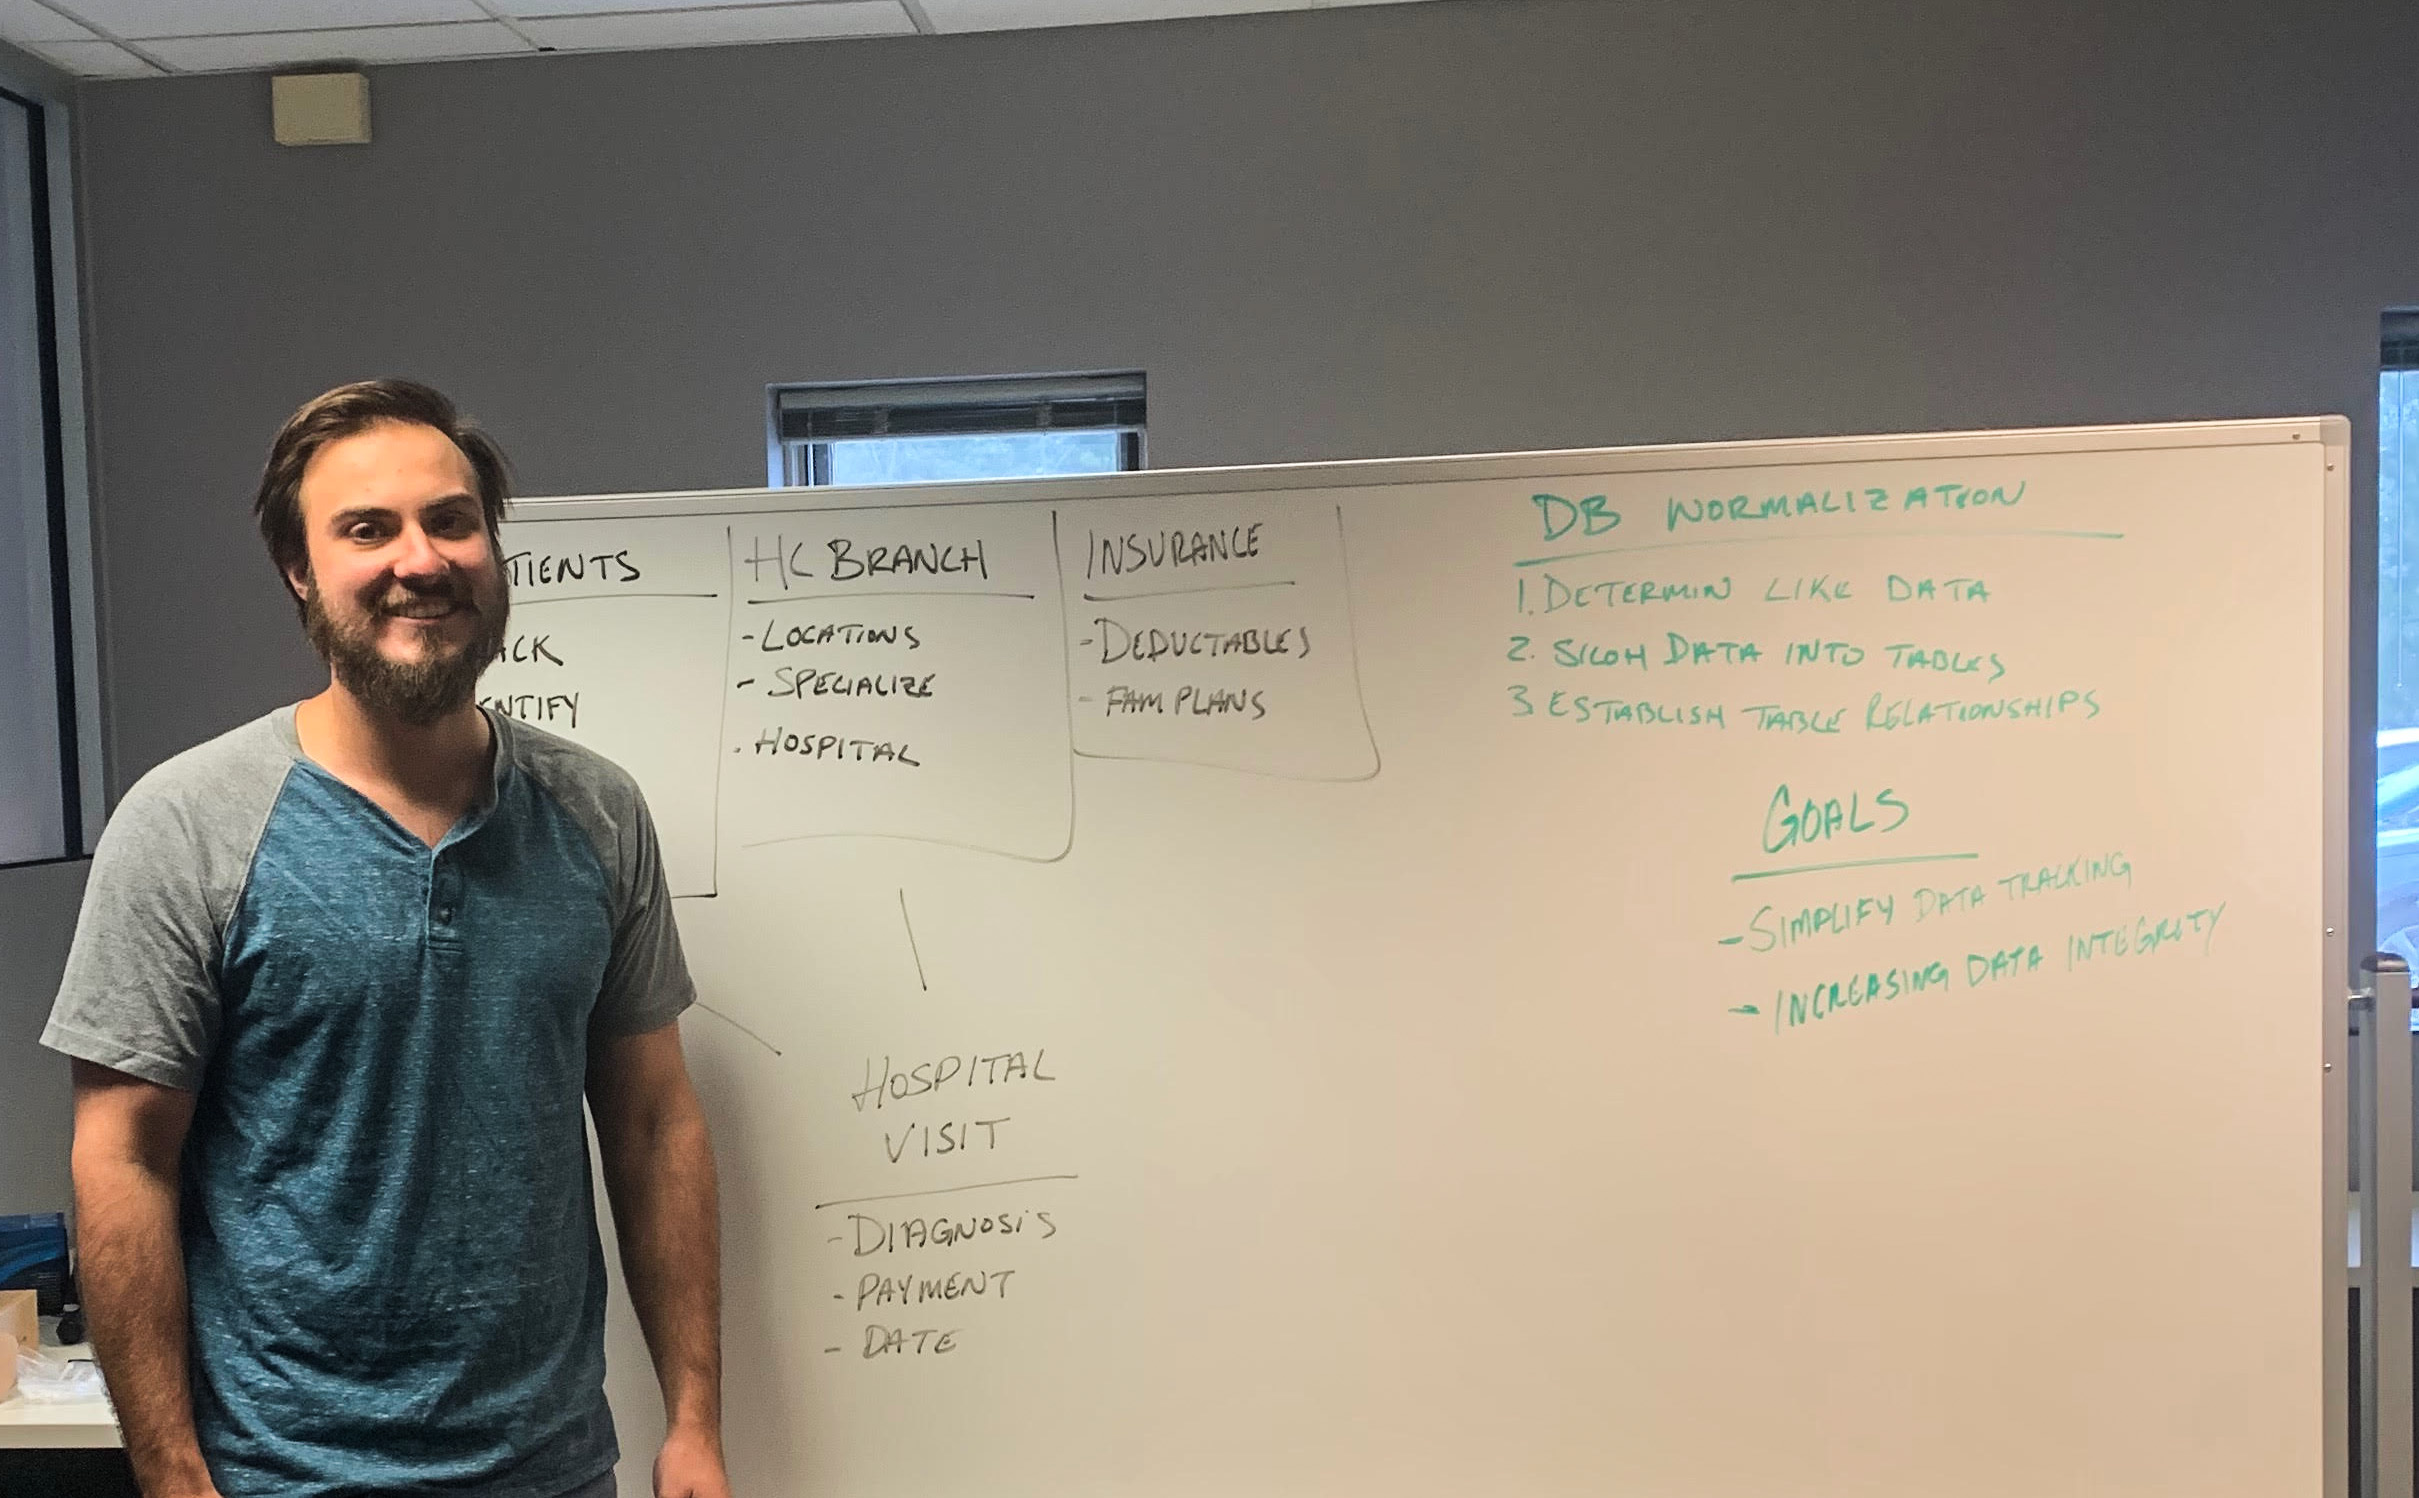 TIENTS
ACK
ENTIFY
HC BRANCH
- LOCATIONS
- SPECIALIZE
. HOSPITAL
INSURANCE
- DEDUCTABLES
- FAM PLANS
HOSPITAL
VISIT
- DIAGNOSIS
- PAYMENT
- DATE
DB NORMALIZATION
1. DETERMIN LIKE DATA
2. SILOH DATA INTO TABLES
3 ESTABLISH TABLE RELATIONSHIPS
GOALS
- SIMPLIFY DATA TRACKING
- INCREASING DATA INTEGRITY